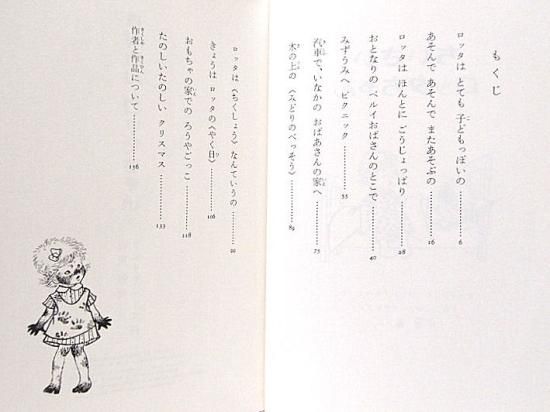 もくじ
ロッタは とても 子どもっぽいの………6
あそんで あそんで またあそぶの………16
ロッタは ほんとに ごうじょっぱり………28
おとなりの ベルイおばさんのとこで………40
みずうみへ ピクニック………55
汽車で、いなかの おばあさんの家へ………75
木の上の 〈みどりのべっそう〉………84
ロッタは 〈ちくしょう〉 なんていうの………92
きょうは ロッタの〈やく日〉………106
おもちゃの家での ろうやごっこ………118
たのしいたのしい クリスマス………133
作者と作品について………156